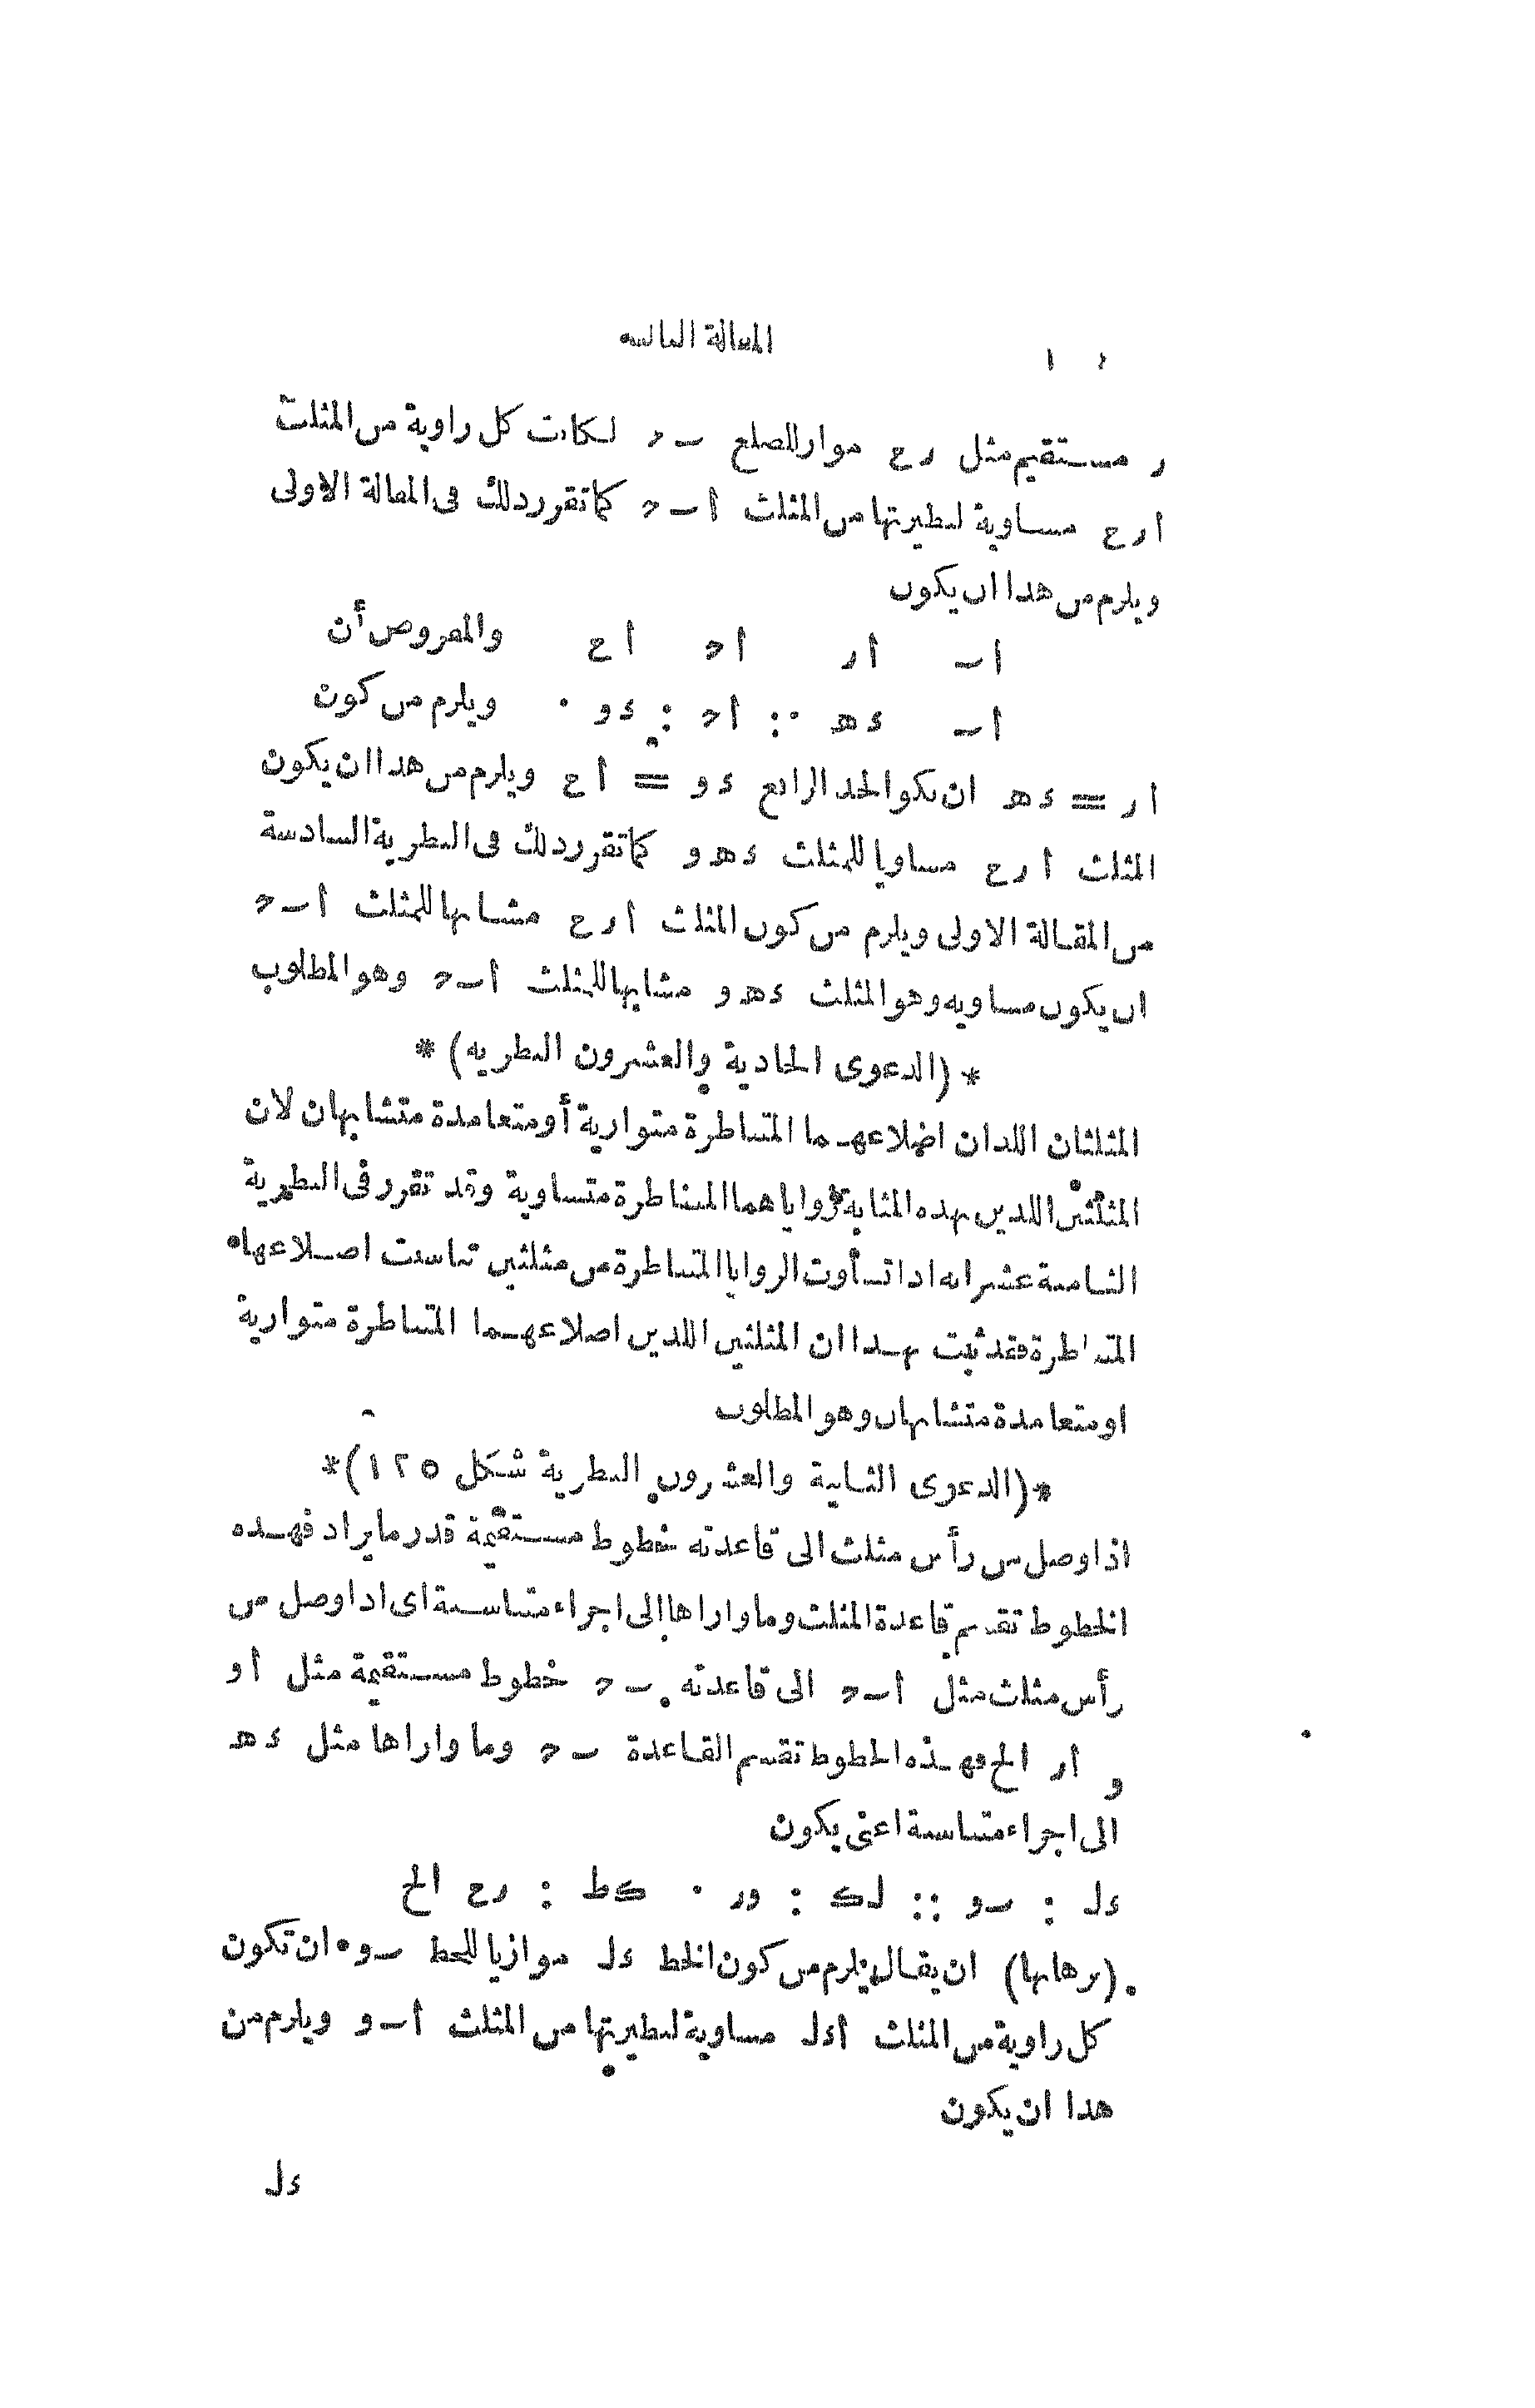 المقالة الثالثة
ر مستقيم مثل رح مواز للضلع ٮـ ﺣ لكانت كل زاوية من المثلث
ا رح مساوية لنظيرتها من المثلث أ ٮـ ﺣ كما تقرر ذلك فى المقالة الاولى
ويلزم من هذا ان يكون
اٮـ أر أﺣ أح والمفروض أن
أٮـ ءهـ :: أﺣ : ءو . ويلزم من كون
ار = ءهـ ان يكو الحد الرابع ءو = أح ويلزم من هذا ان يكون
المثلث أرح مساويا للمثلث ءهـ و كما تقرر ذلك فى النظرية السادسة
من المقالة الاولى ويلزم من كون المثلث أرح مشابها للمثلث أٮـﺣ
ان يكون مساويه وهو المثلث ءهـ و مشابها للمثلث أٮـﺣ وهو المطلوب
*(الدعوى الحادية والعشرون النظريه)*
المثلثان اللذان اضلاعهـما المتناظرة متوازية أو متعامدة متشابهان لان
المثلثين اللذين بهذه المثابة زواياهما المتناظرة متساوية وقد تقرر فى النظرية
الثامنة عشر انه اذا تساوت الزوايا المتناظرة من مثلثين تناسبت اضلاعها
المتناظرة فقد ثبت بهـذا ان المثلثين اللذين اضلاعهـما المتناظرة متوازية
او متعامدة متشابهان وهو المطلوب
*(الدعوى الثانية والعشرون النظرية شكل ١٢٥)*
اذا وصل من رأس مثلث الى قاعدته خطوط مستقيمة قدر ما يراد فهـذه
الخطوط تقسم قاعدة المثلث وما وازاها الى اجزاء متناسبة اى اذا وصل من
رأس مثلث مثل أٮـﺣ الى قاعدته ٮـﺣ خطوط مستقيمة مثل أو
و أر الخ فهـذه الخطوط تقسم القاعدة ٮـﺣ وما وازاها مثل ءهـ
الى اجزاء متناسبة اعنى يكون
ءل : ٮـو :: لك : ور . كط : رح الخ
(برهانها) ان يقال يلزم من كون الخط ءل موازيا للخط ٮـو ان تكون
كل زاوية من المثلث أءل مساوية لنظيرتها من المثلث أٮـو ويلزم من
هذا ان يكون
ءل